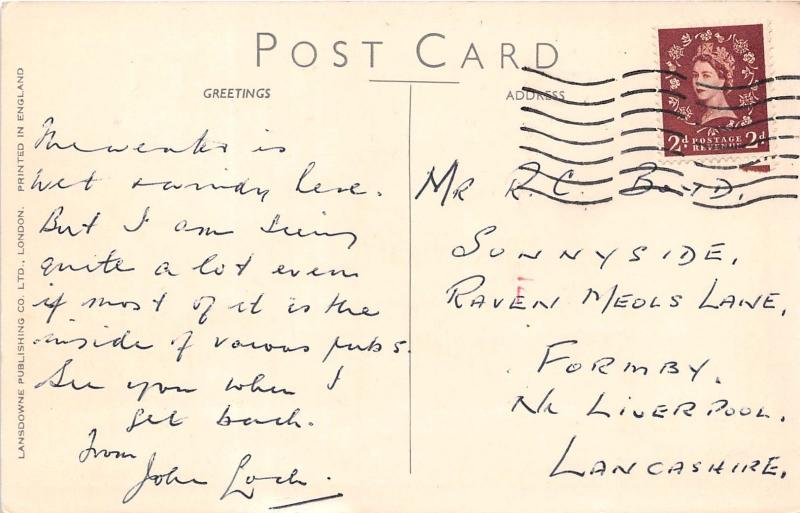 POST CARD
GREETINGS
ADDRESS
LANSDOWNE PUBLISHING CO. LTD., LONDON. PRINTED IN ENGLAND
2d POSTAGE REVENUE 2d
The weather is
wet & windy here.
But I am seeing
quite a lot even
if most of it is the
inside of various pubs.
See you when I
get back.
From
John
MR R.C. BOYD,
SUNNYSIDE,
RAVEN MEOLS LANE,
FORMBY,
NR LIVERPOOL,
LANCASHIRE,